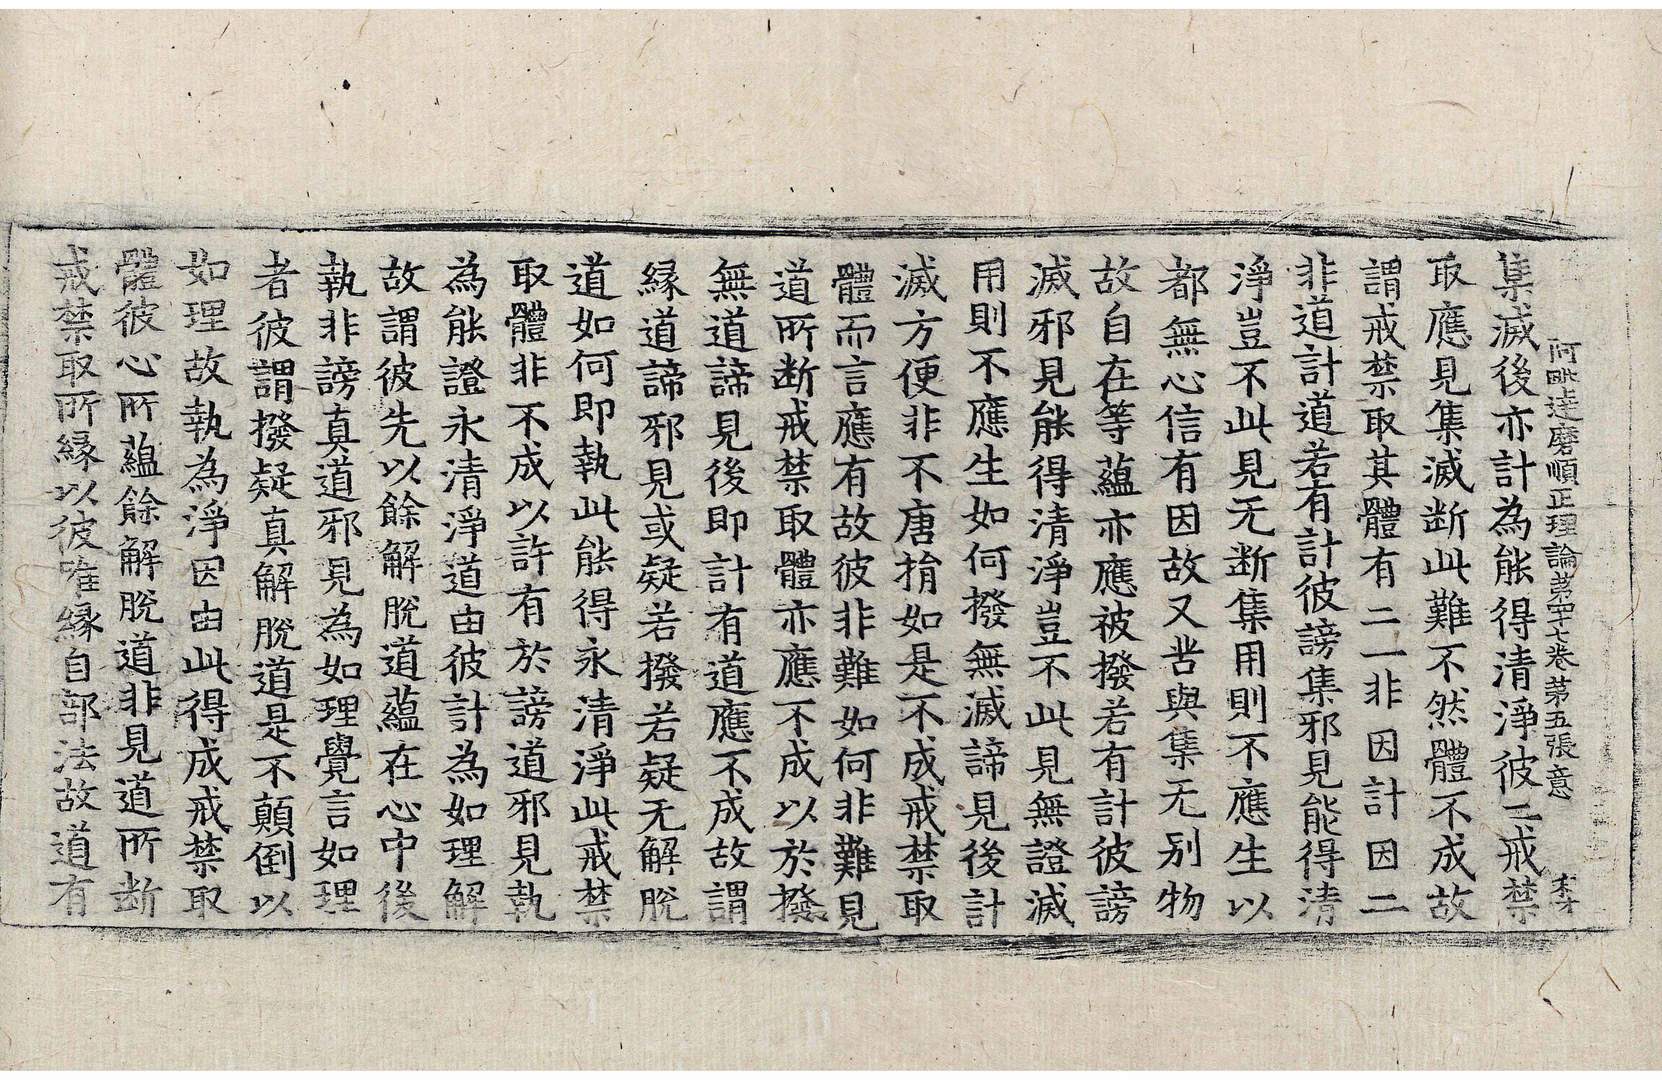 阿毗達磨順正理論第四十七卷 第五張 意 李才
集滅後亦計為能得清淨彼二戒禁
取應見集滅斷此難不然體不成故
謂戒禁取其體有二一非因計因二
非道計道若有計彼謗集邪見能得清
淨豈不此見无断集用則不應生以
都無心信有因故又苦與集无别物
故自在等蘊亦應被撥若有計彼謗
滅邪見能得清淨豈不此見無證滅
用則不應生如何撥無滅諦見後計
滅方便非不唐捐如是不成戒禁取
體而言應有故彼非難如何非難見
道所断戒禁取體亦應不成以於撥
無道諦見後即計有道應不成故謂
縁道諦邪見或疑若撥若疑无解脫
道如何即執此能得永清淨此戒禁
取體非不成以許有於謗道邪見執
為能證永清淨道由彼計為如理解
故謂彼先以餘解脫道蘊在心中後
執非謗真道邪見為如理覺言如理
者彼謂撥疑真解脫道是不顛倒以
如理故執為淨因由此得成戒禁取
體彼心所蘊餘解脫道非見道所断
戒禁取所縁以彼唯縁自部法故道有